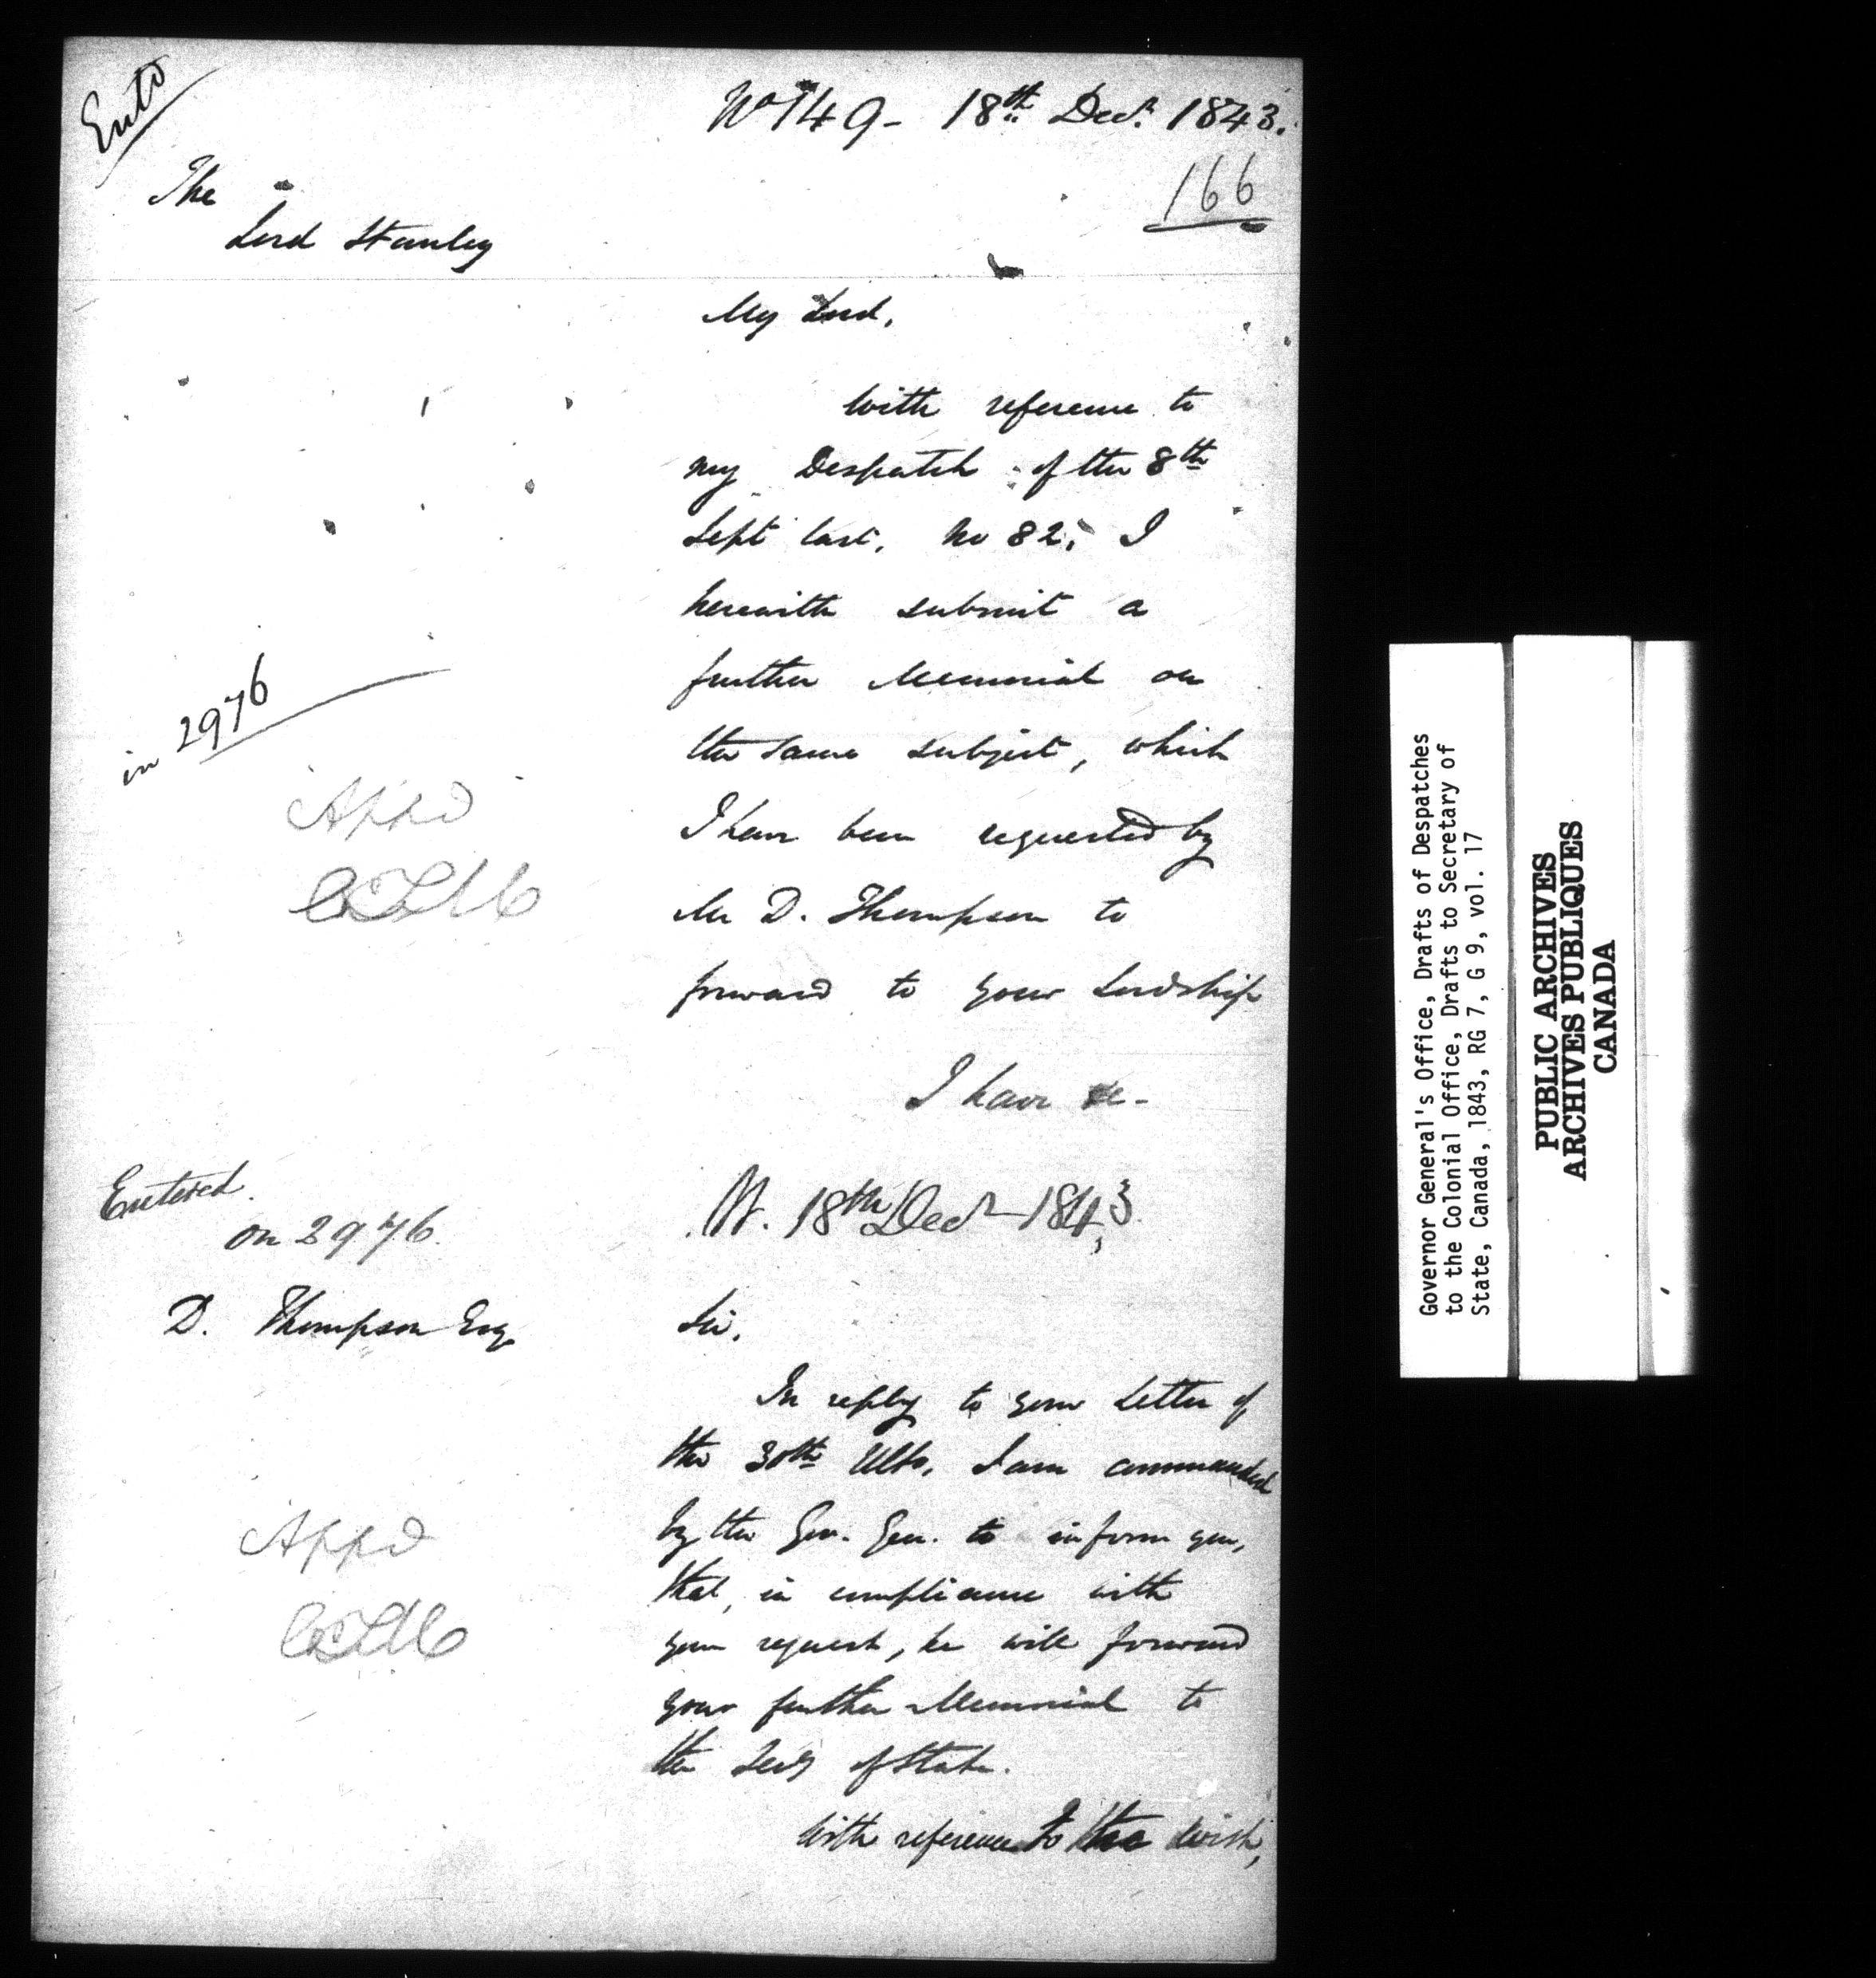 Entd
No 149 - 18th Decr. 1843.
166
The
Lord Stanley
My Lord,
With reference to
my Despatch of the 8th
Sept last. No 82, I
herewith submit a
further Memorial on
the same subject, which
I have been requested by
Mr D. Thompson to
forward to your Lordship
I have &c-
in 2976
Appd
Entered
on 2976.
18th Decr 1843
D. Thompson Esq
Sir,
In reply to your Letter of
the 30th Ulto, I am commanded
by the Gov. Gen. to inform you,
that, in compliance with
your request, he will forward
your further Memorial to
the Secy of State.
With reference to the wish,
Appd
Governor General's Office, Drafts of Despatches
to the Colonial Office, Drafts to Secretary of
State, Canada, 1843, RG 7, G 9, vol. 17
PUBLIC ARCHIVES
ARCHIVES PUBLIQUES
CANADA